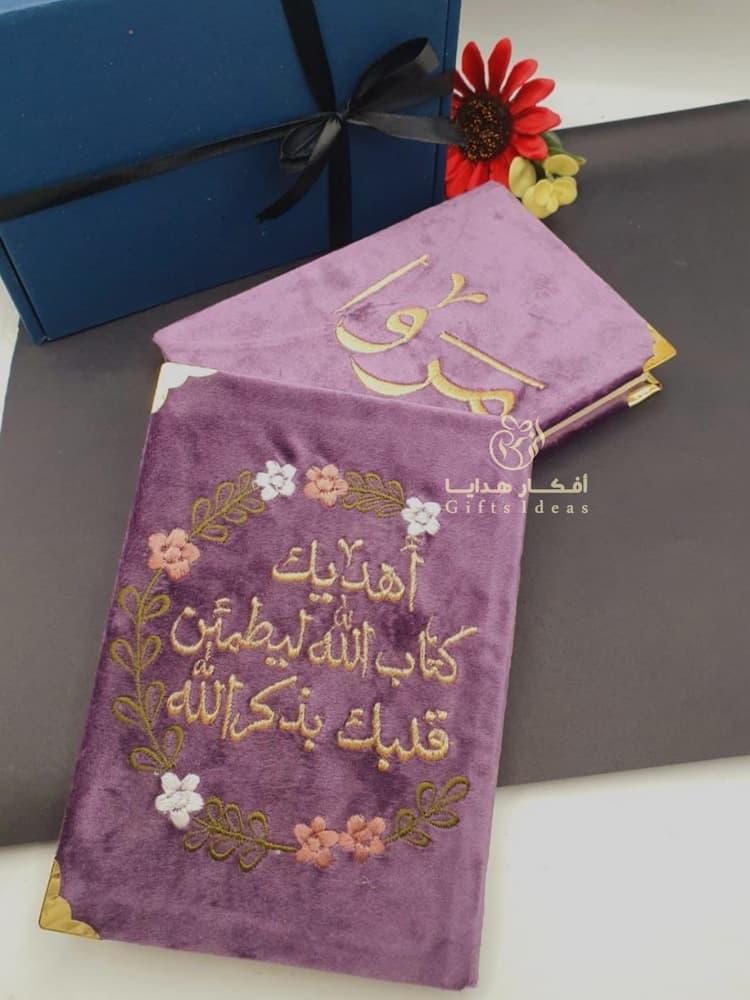 أفكار هدايا
Gifts Ideas
أهديك
كتاب الله ليطمئن
قلبك بذكر الله